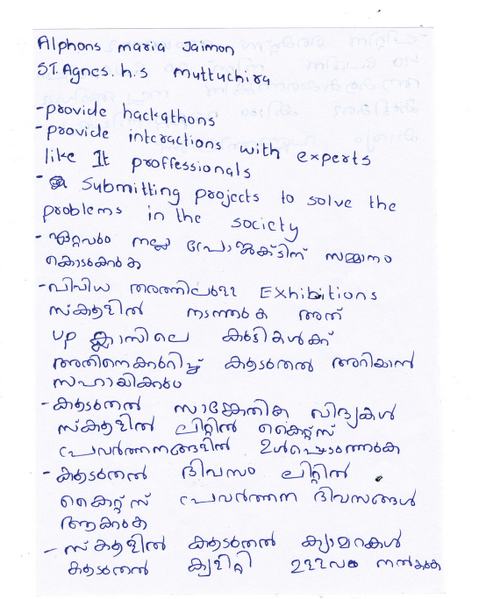 Alphons maria Jaimon
ST. Agnes. h.s Muttuchira
- provide hackathons
- provide interactions with experts
like It proffessionals
- Submitting projects to solve the
problems in the society
- ഏറ്റവും നല്ല പ്രോജക്ടിന് സമ്മാനം
കൊടുക്കുക
- വിവിധ തരത്തിലുള്ള Exhibitions
സ്കൂളിൽ നടത്തുക അത്
UP ക്ലാസിലെ കുട്ടികൾക്ക്
അതിനെക്കുറിച്ച് കൂടുതൽ അറിയാൻ
സഹായിക്കും
- കൂടുതൽ സാങ്കേതിക വിദ്യകൾ
സ്കൂളിൽ ലിറ്റിൽ കൈറ്റ്സ്
പ്രവർത്തനങ്ങളിൽ ഉൾപ്പെടുത്തുക
- കൂടുതൽ ദിവസം ലിറ്റിൽ
കൈറ്റ്സ് പ്രവർത്തന ദിവസങ്ങൾ
ആക്കുക
- സ്കൂളിൽ കൂടുതൽ ക്യാമറകൾ
കൂടുതൽ ക്വാളിറ്റി ഉള്ളവ നൽകുക